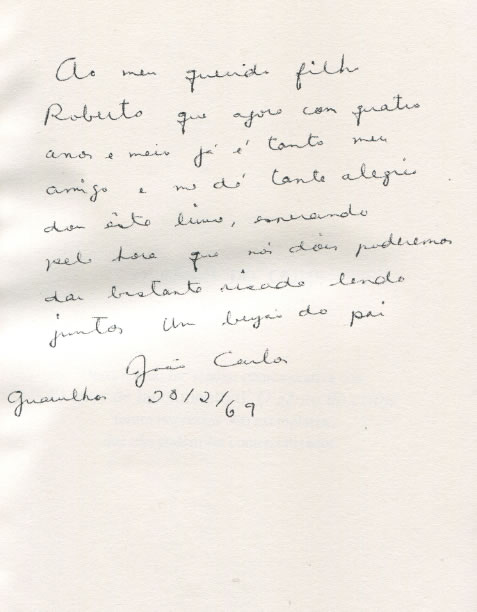 Ao meu querido filho
Roberto que agora con quatro
anos e meio já é tanto meu
amigo e me dá tanta alegria
dou êste livro, esperando
pela hora que nós dois poderemos
dar bastante risada lendo
juntos Um beijão do pai
João Carlos
Guarulhos 28/2/69